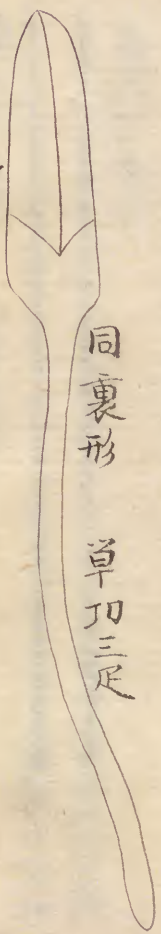 同裏形
草刀三疋